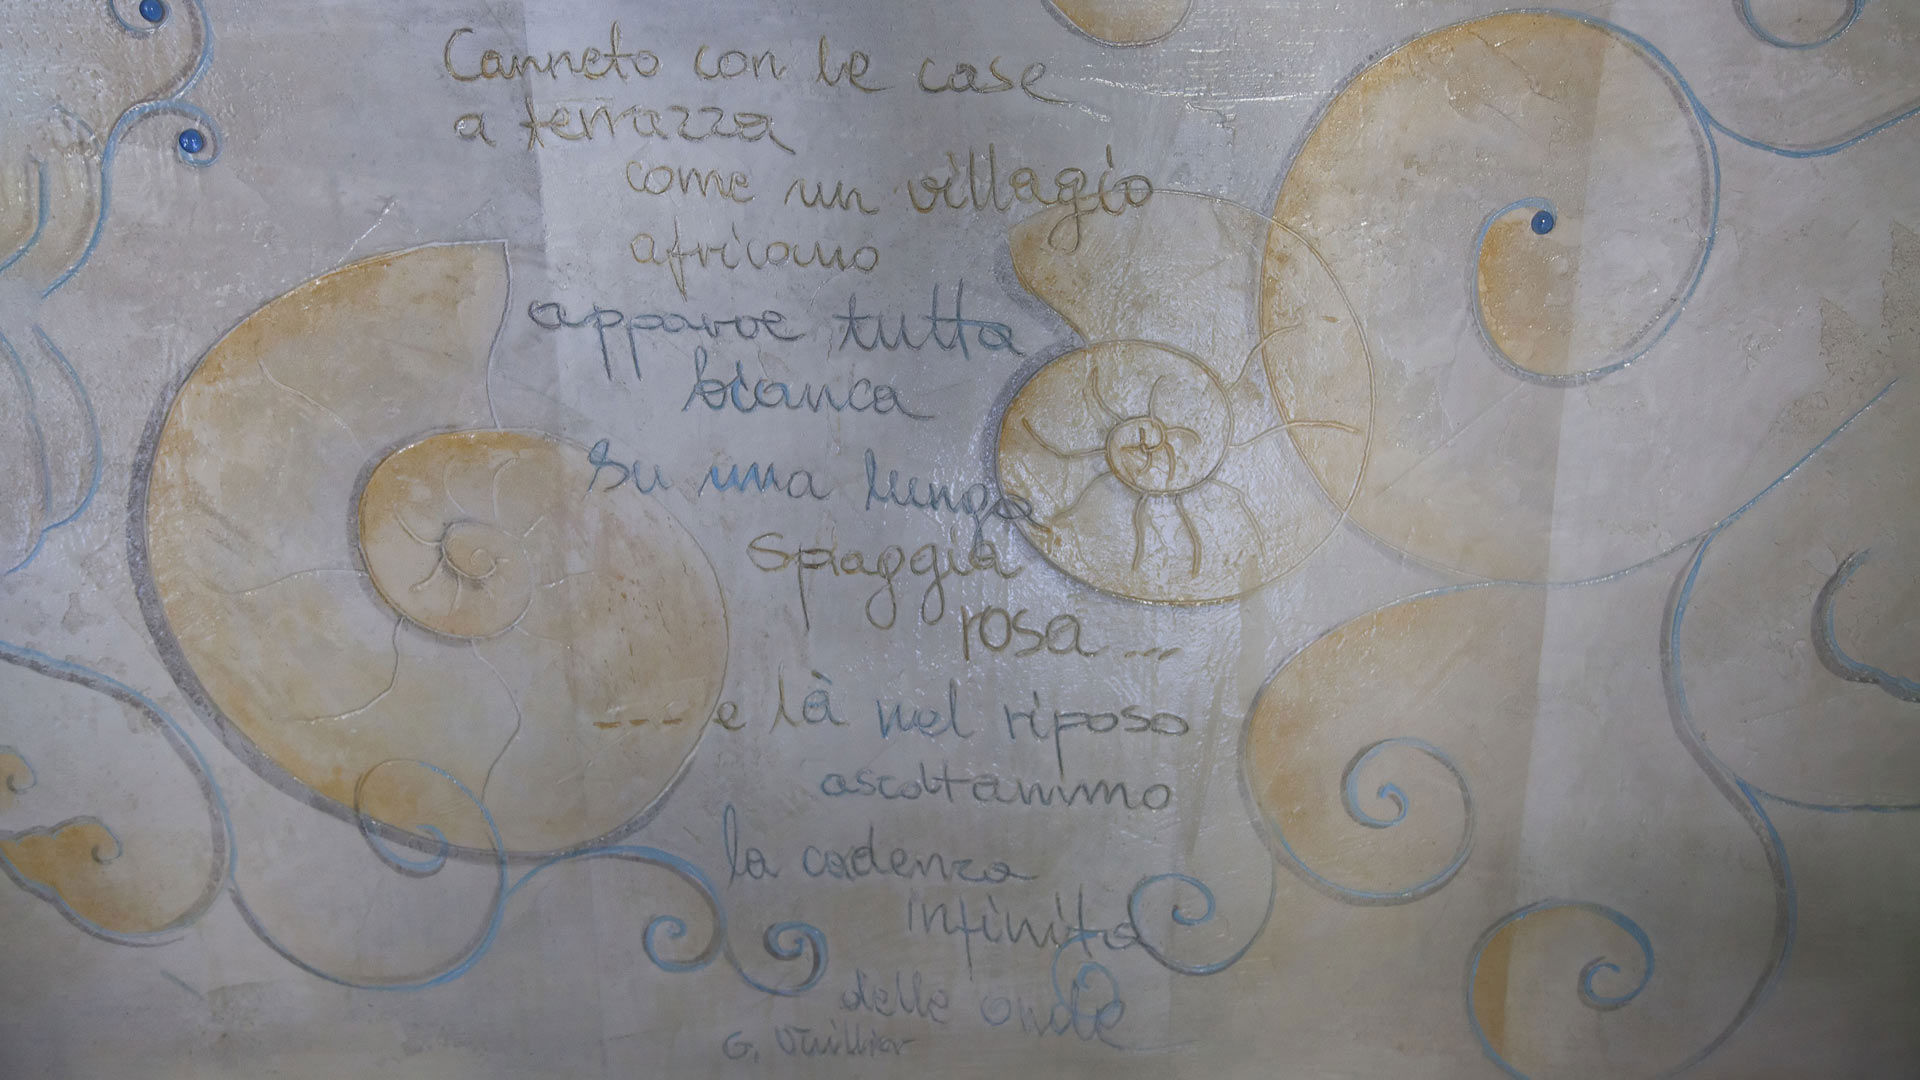 Canneto con le case
a terrazza
come un villagio
africano
apparve tutta
bianca
su una lunga
spiaggia
rosa...
---- e là nel riposo
ascoltammo
la cadenza
infinita
delle onde
G. Vuillier